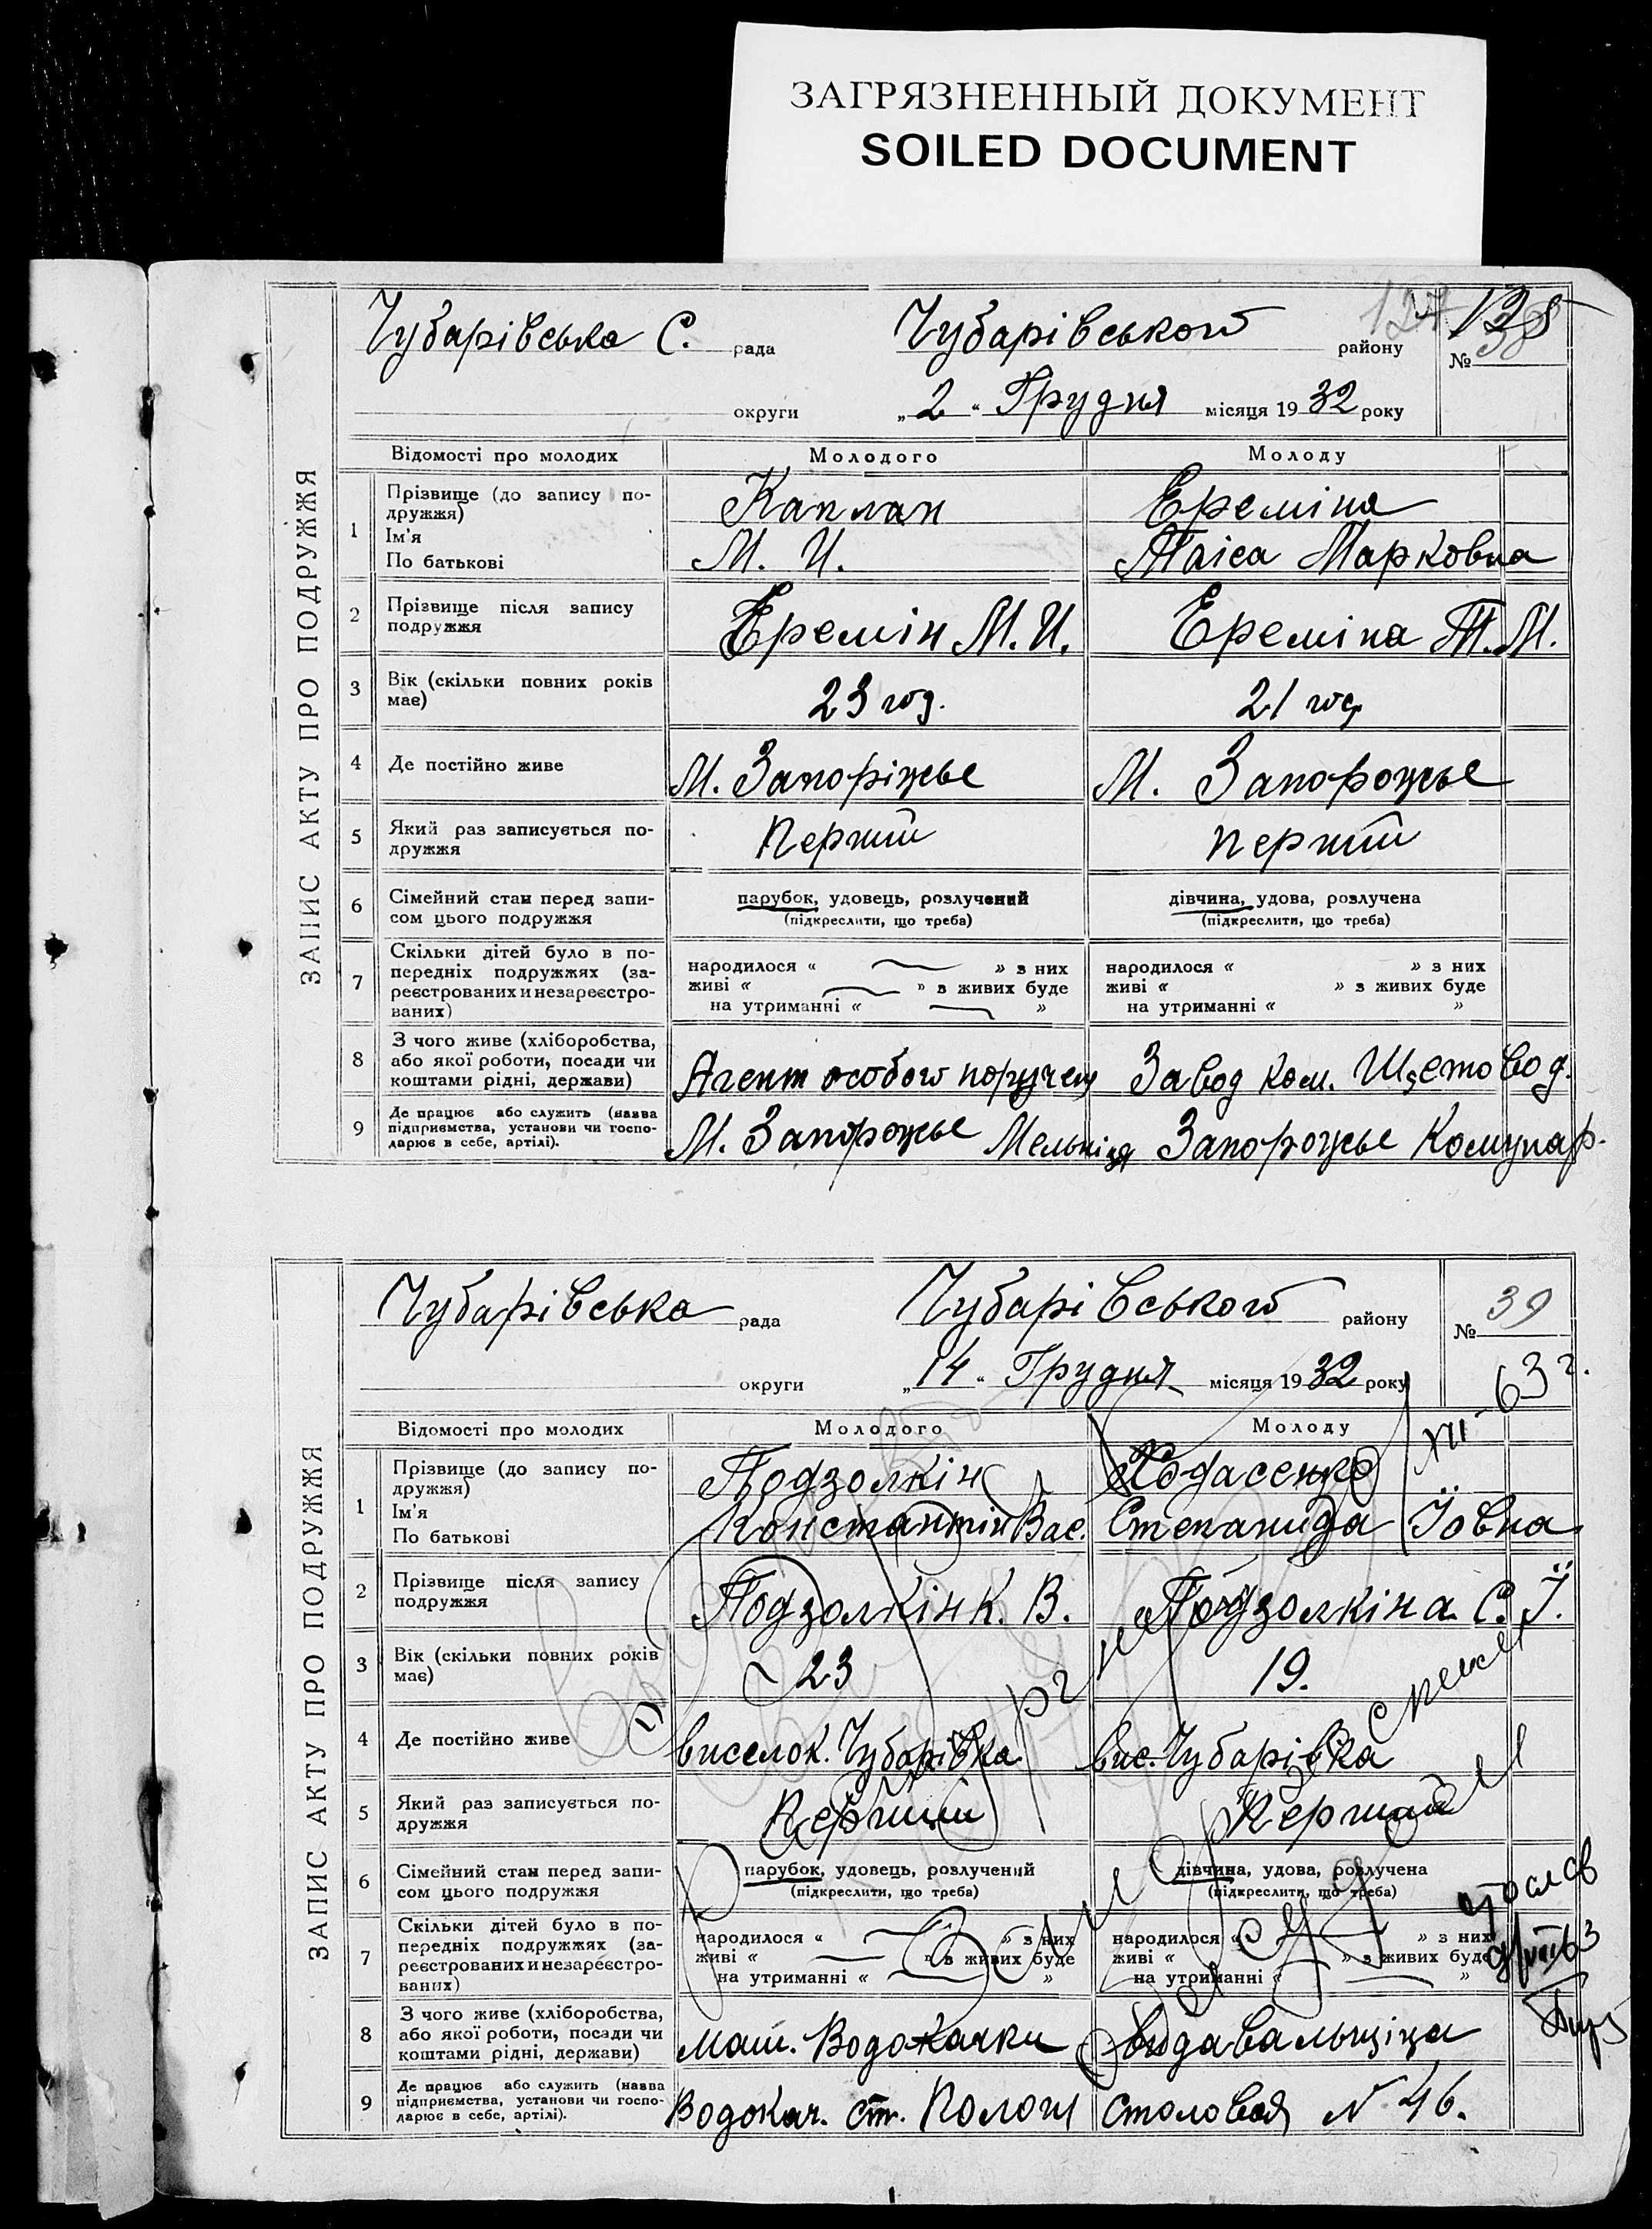 ЗАГРЯЗНЕННЫЙ ДОКУМЕНТ
SOILED DOCUMENT
ЗАПИС АКТУ ПРО ПОДРУЖЖЯ
Чубарівська С. рада Чубарівського району № 38
127 128
округи „2“ Грудня місяця 1932 року
Відомості про молодих Молодого Молоду
1 Прізвище (до запису по-
дружжя) Каплан Ереміна
Ім'я
По батькові М. И. Таіса Марковна
2 Прізвище після запису
подружжя Еремін М. И. Ереміна Т. М.
3 Вік (скільки повних років
має) 23 год. 21 год
4 Де постійно живе М. Запоріжье М. Запорожье
5 Який раз записується по-
дружжя Перший перший
6 Сімейний стан перед запи-
сом цього подружжя
парубок, удовець, розлучений дівчина, удова, розлучена
(підкреслити, що треба) (підкреслити, що треба)
7 Скільки дітей було в по-
передніх подружжях (за-
реєстрованих и незареєстро-
ваних)
народилося « » з них народилося « » з них
живі « » в живих буде живі « » з живих буде
на утриманні « » на утриманні « »
8 З чого живе (хліборобства,
або якої роботи, посади чи
коштами рідні, держави) Агент особого поручен Завод Ком. Щетовод.
9 Де працює або служить (назва
підприємства, установи чи госпо-
дарює в себе, артілі). М. Запорожье Мельніця Запорожье Комунар.
ЗАПИС АКТУ ПРО ПОДРУЖЖЯ
Чубарівська рада Чубарівського району № 39
округи „14“ Грудня місяця 1932 року
XII - 63 г.
Відомості про молодих Молодого Молоду
1 Прізвище (до запису по-
дружжя) Подзолкін Ходасенко
Ім'я
По батькові Константін Вас. Степанида Їовна
2 Прізвище після запису
подружжя Подзолкін К. В. Подзолкіна С. Ї.
3 Вік (скільки повних років
має) 23 19.
4 Де постійно живе виселок. Чубарівка вис. Чубарівка
5 Який раз записується по-
дружжя Перший Перший
6 Сімейний стан перед запи-
сом цього подружжя
парубок, удовець, розлучений дівчина, удова, розлучена
(підкреслити, що треба) (підкреслити, що треба)
7 Скільки дітей було в по-
передніх подружжях (за-
реєстрованих и незареєстро-
ваних)
народилося « » з них народилося « » з них
живі « » в живих буде живі « » з живих буде
на утриманні « » на утриманні « »
8 З чого живе (хліборобства,
або якої роботи, посади чи
коштами рідні, держави) маш. Водокачки видавальщіца
9 Де працює або служить (назва
підприємства, установи чи госпо-
дарює в себе, артілі). Водокач. ст. Пологи столовая N 46.